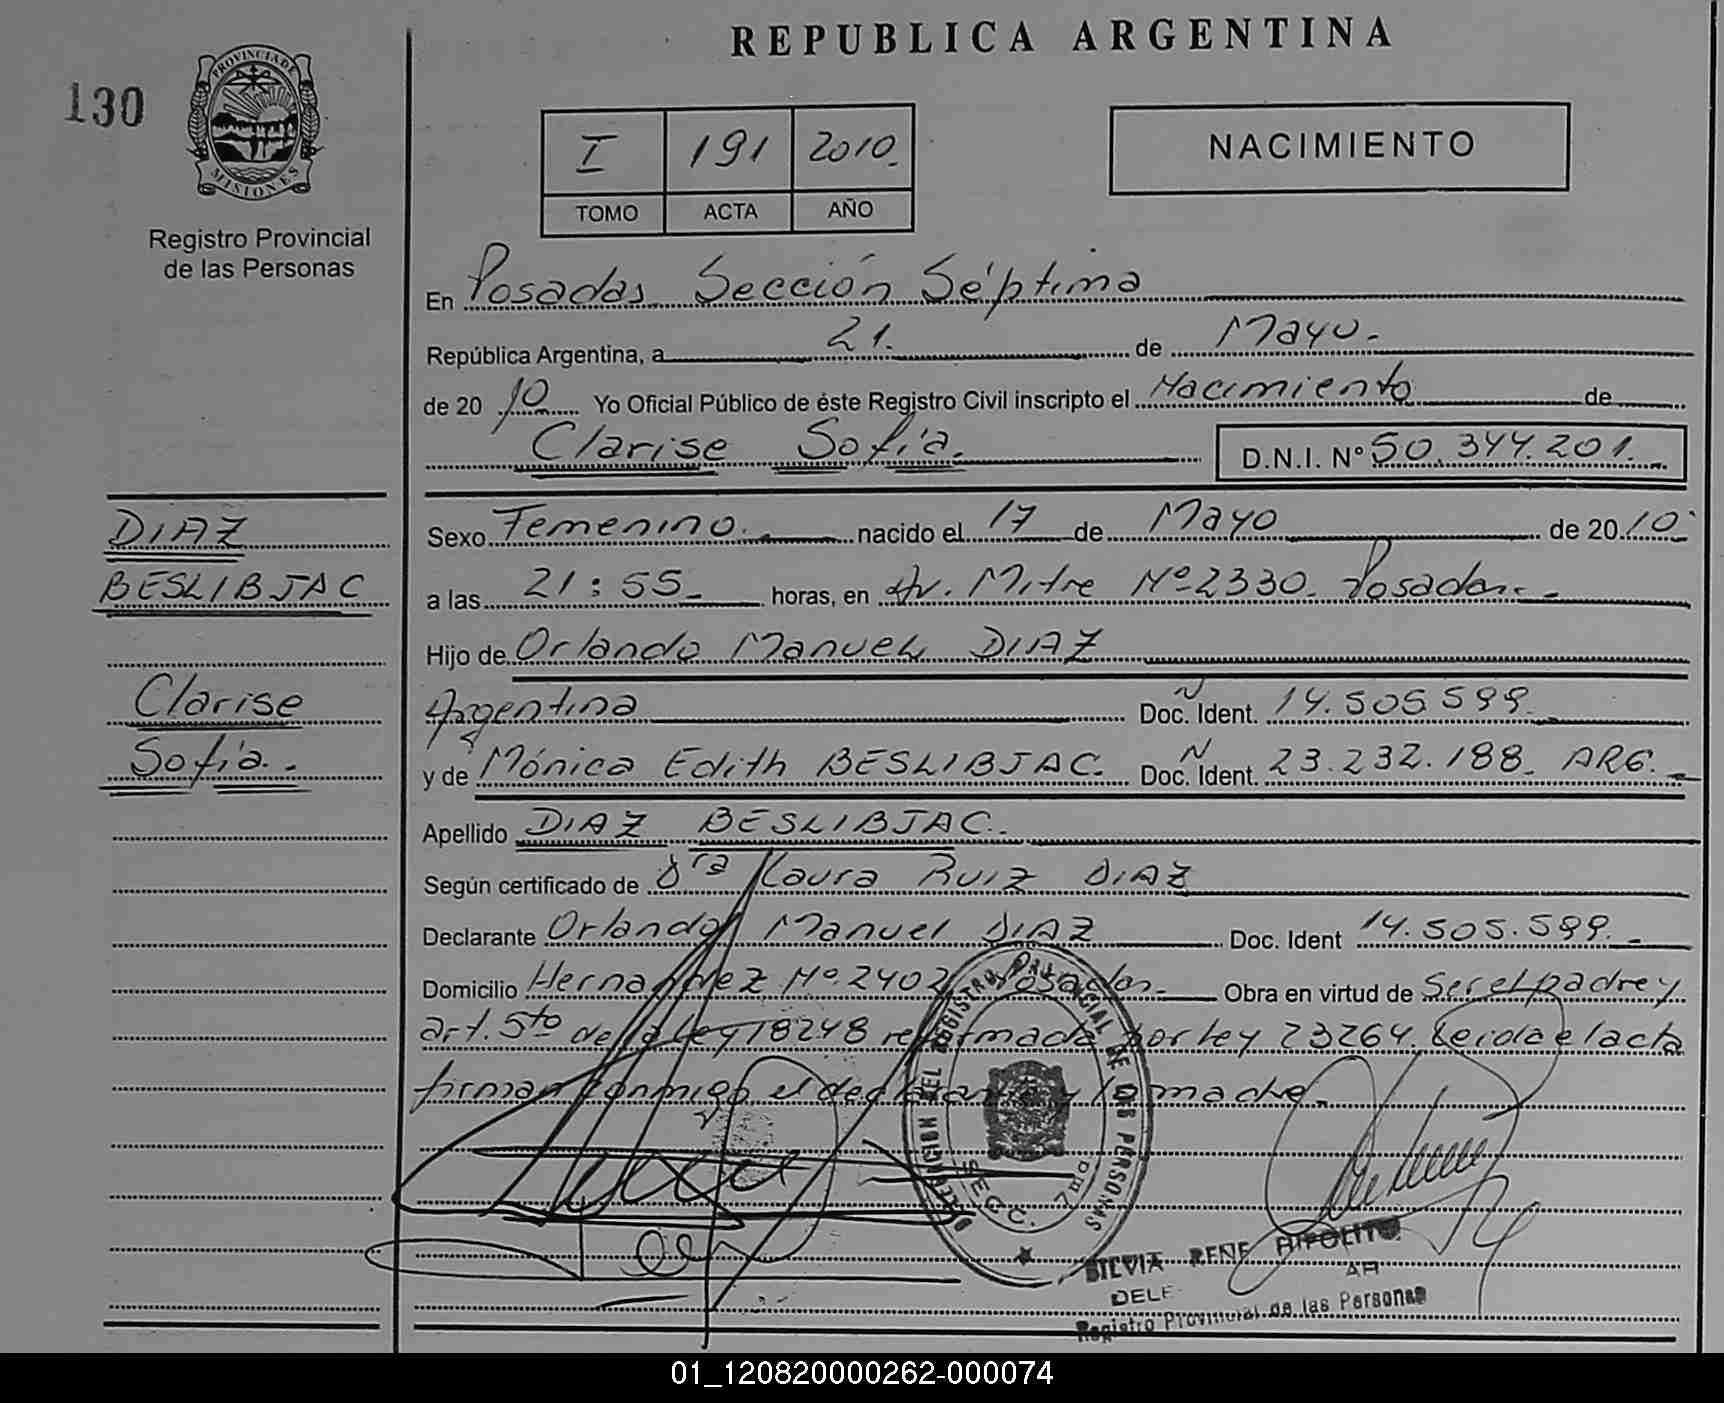 REPUBLICA ARGENTINA
130
PROVINCIA DE
MISIONES
Registro Provincial
de las Personas
I 191 2010.
TOMO ACTA AÑO
NACIMIENTO
En Posadas Sección Séptima
República Argentina, a 21. de Mayo.
de 20 10 Yo Oficial Público de éste Registro Civil inscripto el Nacimiento de
Clarise Sofía. D.N.I. Nº 50.344.201.
DIAZ
BESLIBJAC
Clarise
Sofía.
Sexo Femenino. nacido el 17 de Mayo de 20 10
a las 21:55 horas, en Av. Mitre Nº 2330. Posadas.
Hijo de Orlando Manuel DIAZ
Argentina Doc. Ident. 14.505.599.
y de Mónica Edith BESLIBJAC. Doc. Ident. 23.232.188. ARG.
Apellido DIAZ BESLIBJAC.
Según certificado de Dra Laura Ruiz DIAZ
Declarante Orlando Manuel DIAZ Doc. Ident 14.505.599.
Domicilio Hernandez Nº 2402 Posadas. Obra en virtud de Ser el padre y
art. 5to de la Ley 18248 reformada por Ley 23264. Leida el acta
firman conmigo el declarante y la madre.
DIRECCION DEL REGISTRO PROVINCIAL DE LAS PERSONAS
SECC. 7ma
SILVIA RENE HIPOLITO
DELE AR
Registro Provincial de las Personas
01_120820000262-000074